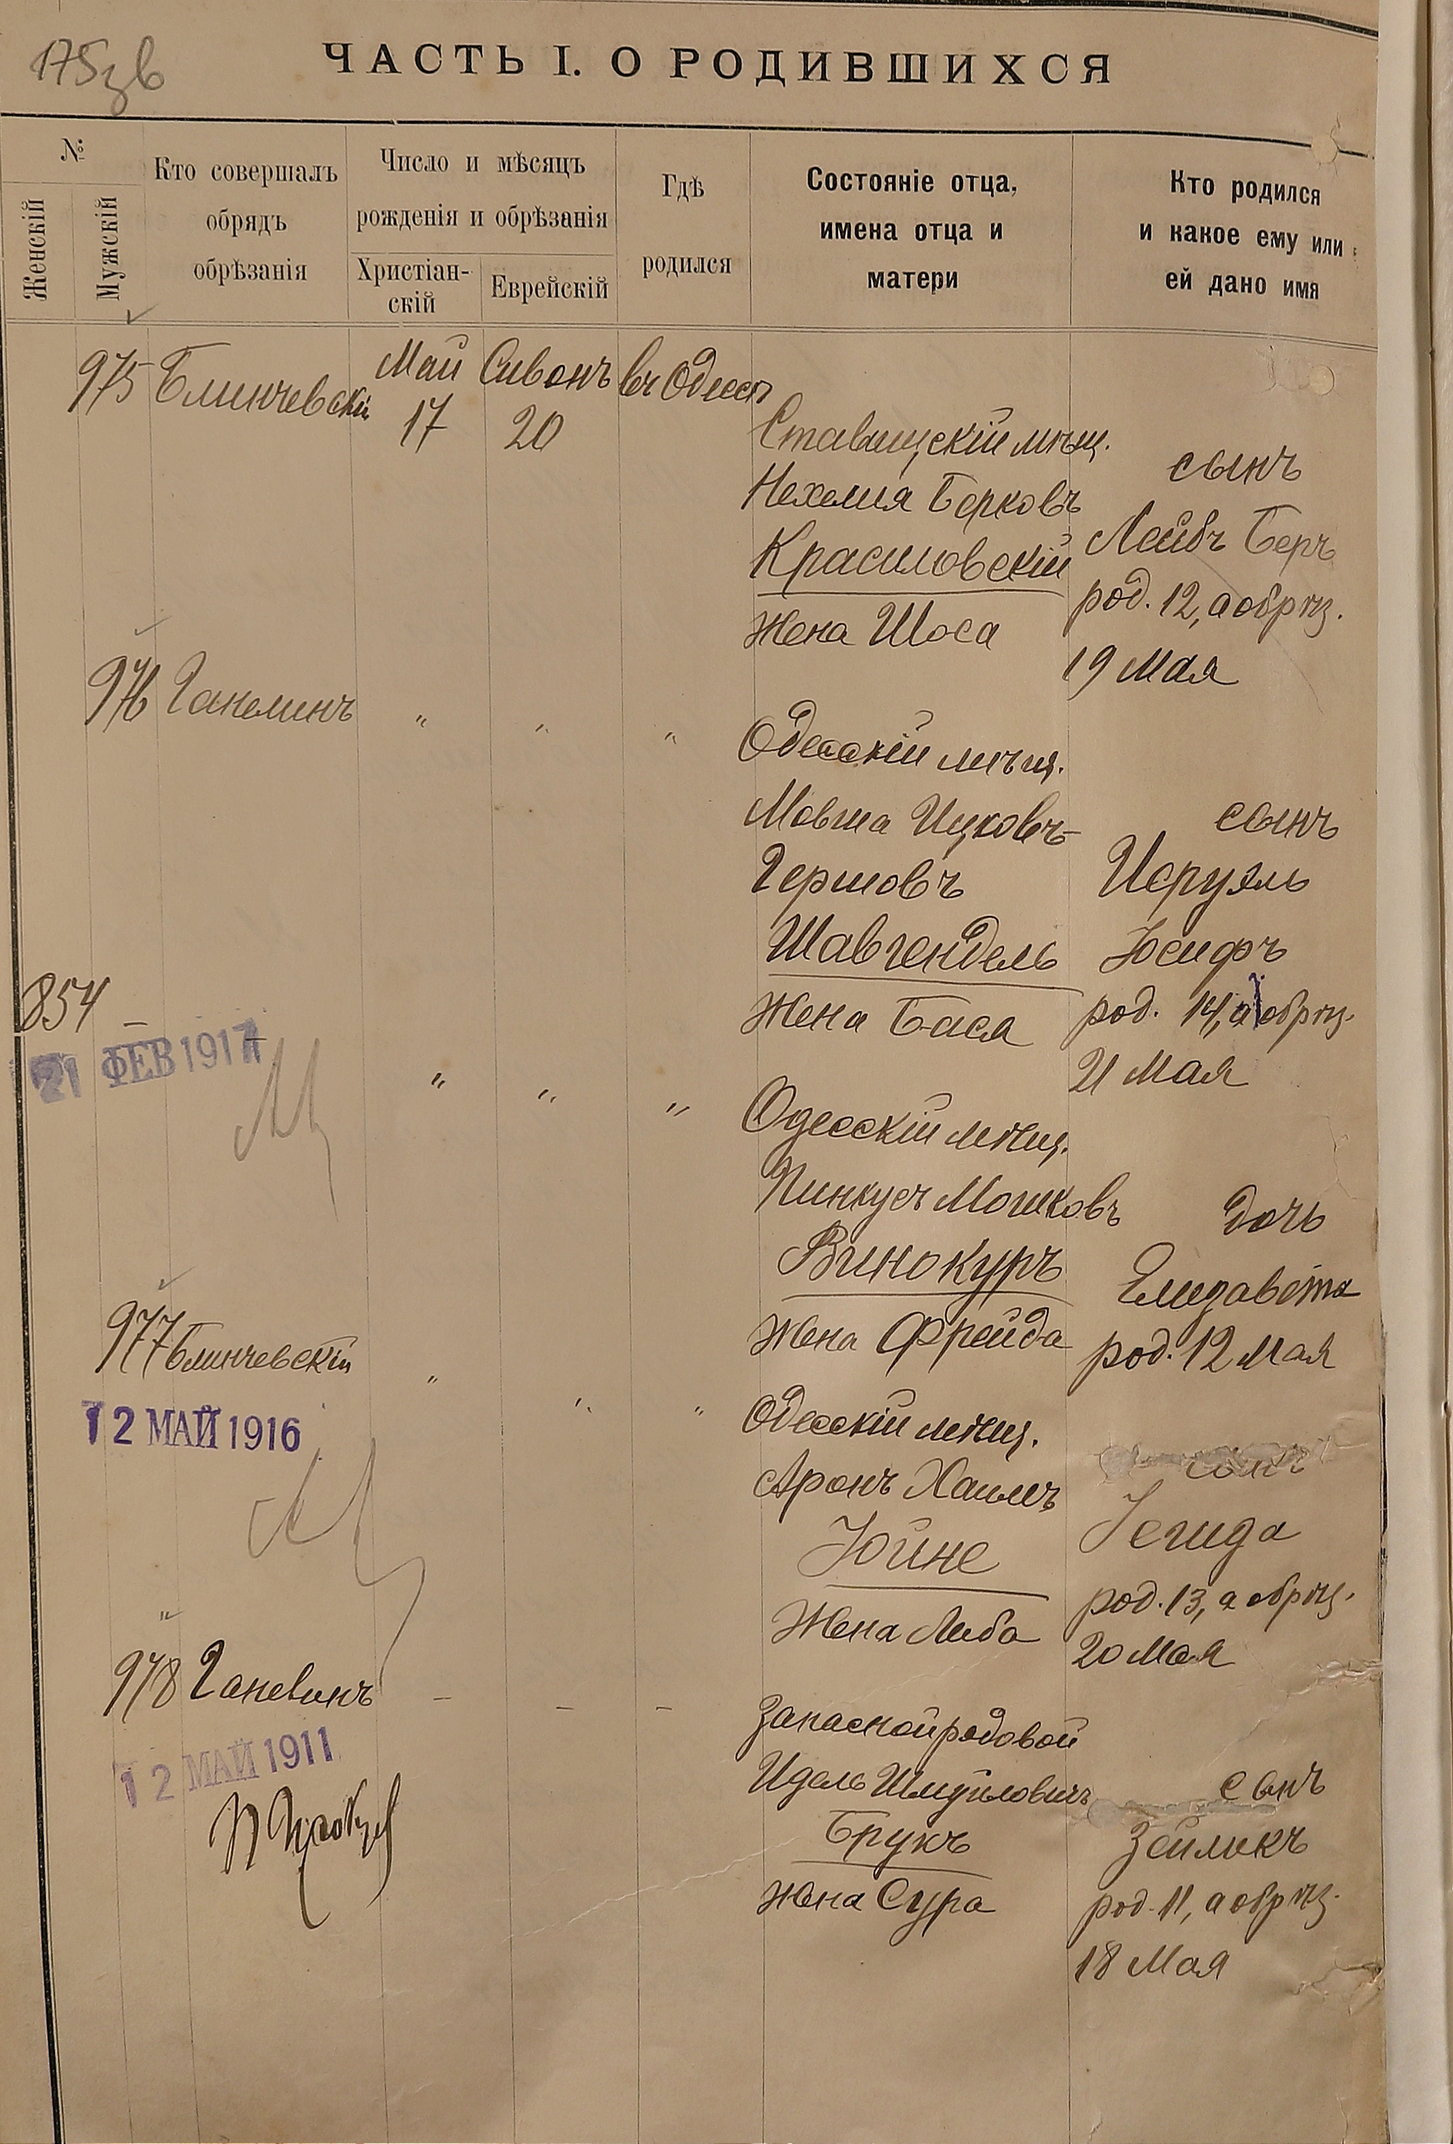 175 зв
ЧАСТЬ I. О РОДИВШИХСЯ
№
Женскій
Мужскій
Кто совершалъ
обрядъ
обрѣзанія
Число и мѣсяцъ
рожденія и обрѣзанія
Христіан-
скій
Еврейскій
Гдѣ
родился
Состояніе отца,
имена отца и
матери
Кто родился
и какое ему или
ей дано имя
975 Блинчевскій Май Сивонъ въ Одессѣ
17 20
Ставищскій мѣщ.
Нехемія Берковъ
Красиловскій
Жена Шоса
сынъ
Лейбъ Беръ
род. 12, а обрѣз.
19 Мая
976 Ганелинъ " " "
Одесскій мѣщ.
Мовша Ицковъ-
Гершовъ
Шавгендель
Жена Бася
сынъ
Исруэль
Іосифъ
род. 14, а обрѣз.
21 Мая
854 – " " "
21 ФЕВ 1917
Одесскій мѣщ.
Пинкусъ Мошковъ
Винокуръ
Жена Фрейда
дочь
Елизавета
род. 12 Мая
977 Блинчевскій " " "
12 МАЙ 1916
Одесскій мѣщ.
Аронъ Хаимъ
Юйне
Жена Либа
сынъ
Іегида
род. 13, а обрѣз.
20 Мая
"
978 Ганелинъ – – –
12 МАЙ 1911
Запасной рядовой
Идель Шмуйловичъ
Брукъ
Жена Сура
сынъ
Зейликъ
род. 11, а обрѣз.
18 Мая